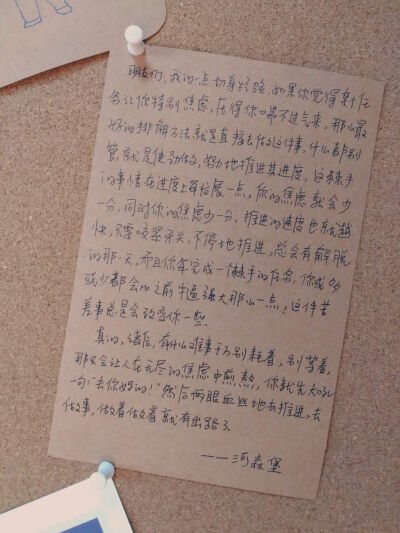 朋友们，我的一点切身经验，如果你觉得某个任
务让你特别焦虑，压得你喘不过气来，那么最
好的排解方法就是直接去做这件事，什么都别
管，就是使劲做，努力地推进其进度，这棘手
的事情在进度上每拓展一点，你的焦虑就会少
一分，同时你的焦虑少一分，推进的速度也就越
快，只要咬紧牙关，不停地推进，总会有解脱
的那一天，而且你每完成一个棘手的任务，你或多
或少都会比之前牛逼强大那么一点，这件苦
差事总是会改变你一些。
真的，诸位，有什么难事千万别耗着，别等着，
那只会让人在无尽的焦虑中煎熬，你就先大吼
一句：“去你妈的！”然后两眼血丝地去推进，去
做事，做着做着就有出路了
——河森堡